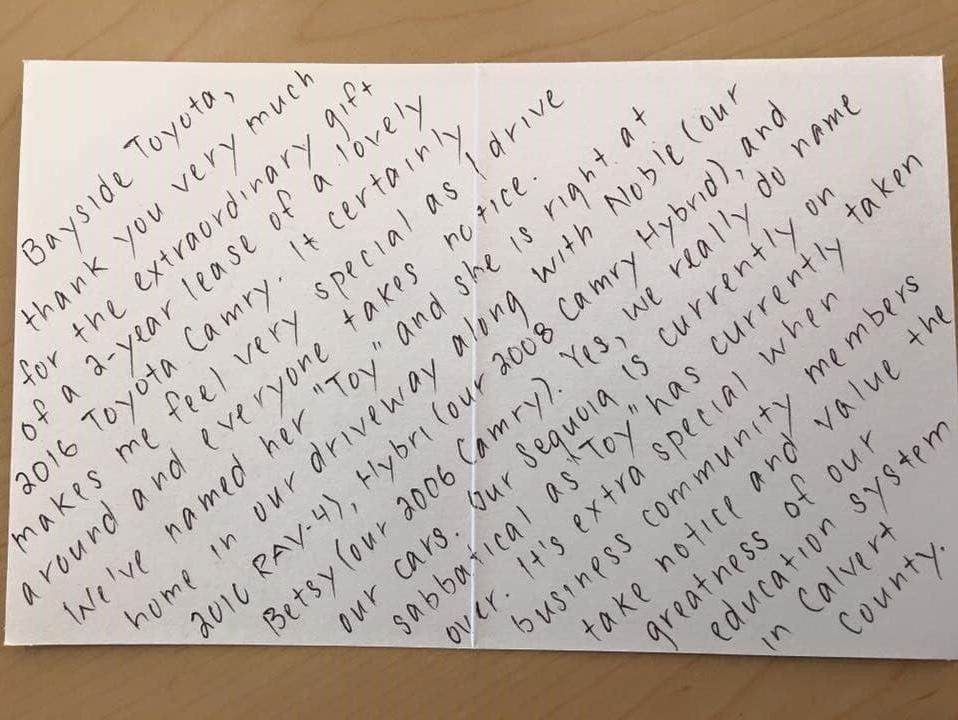 Bayside Toyota,
thank you very much
for the extraordinary gift
of a 2-year lease of a lovely
2016 Toyota Camry. It certainly
makes me feel very special as I drive
around and everyone takes notice.
We've named her "Toy" and she is right at
home in our driveway along with Noble (our
2010 RAV-4), Hybri (our 2008 Camry Hybrid), and
Betsy (our 2006 Camry). Yes, we really do name
our cars. Our Sequoia is currently on
sabbatical as "Toy" has currently taken
over. It's extra special when
business community members
take notice and value the
greatness of our
education system
in Calvert
County.